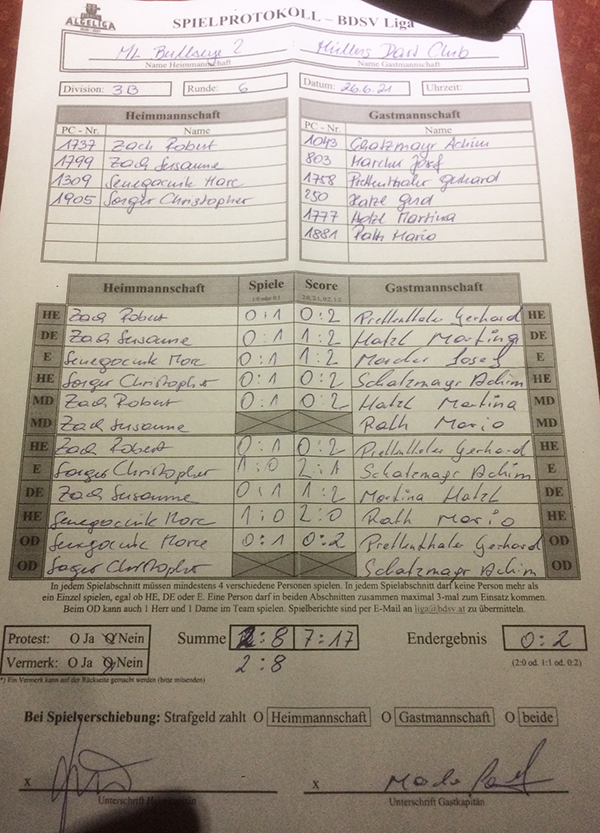 ALGELIGA
SPIELPROTOKOLL – BDSV Liga
ML Bullseye 2 : Müllers Dart Club
Name Heimmannschaft Name Gastmannschaft
Division: 3B Runde: 6 Datum: 26.6.21 Uhrzeit:
Heimmannschaft Gastmannschaft
PC - Nr. Name PC - Nr. Name
1737 Zach Robert 1043 Schatzmayr Achim
1799 Zach Susanne 803 Marcher Josef
1309 Senegacnik Marc 1758 Prettenthaler Gerhard
1905 Sorger Christopher 250 Gerd
1777 Hatzl Martina
1881 Rath Mario
Heimmannschaft Spiele Score Gastmannschaft
1:0 oder 0:1 2:0, 2:1, 0:2, 1:2
HE Zach Robert 0:1 0:2 Prettenthaler Gerhard HE
DE Zach Susanne 0:1 1:2 Hatzl Martina DE
E Senegacnik Marc 0:1 1:2 Marcher Josef E
HE Sorger Christopher 0:1 0:2 Schatzmayr Achim HE
MD Zach Robert 0:1 0:2 Hatzl Martina MD
MD Zach Susanne Rath Mario MD
HE Zach Robert 0:1 0:2 Prettenthaler Gerhard HE
E Sorger Christopher 1:0 2:1 Schatzmayr Achim E
DE Zach Susanne 0:1 1:2 Martina Hatzl DE
HE Senegacnik Marc 1:0 2:0 Rath Mario HE
OD Senegacnik Marc 0:1 0:2 Prettenthaler Gerhard OD
OD Sorger Christopher Schatzmayr Achim OD
In jedem Spielabschnitt müssen mindestens 4 verschiedene Personen spielen. In jedem Spielabschnitt darf keine Person mehr als
ein Einzel spielen, egal ob HE, DE oder E. Eine Person darf in beiden Abschnitten zusammen maximal 3-mal zum Einsatz kommen.
Beim OD kann auch 1 Herr und 1 Dame im Team spielen. Spielberichte sind per E-Mail an liga@bdsv.at zu übermitteln.
Protest: O Ja O Nein Summe 2:8 7:17 Endergebnis 0:2
Vermerk: O Ja O Nein 2:8 (2:0 od. 1:1 od. 0:2)
*) Ein Vermerk kann auf der Rückseite gemacht werden (bitte ankreuzen)
Bei Spielverschiebung: Strafgeld zahlt O Heimmannschaft O Gastmannschaft O beide
x x
Unterschrift Heimkapitän Unterschrift Gastkapitän